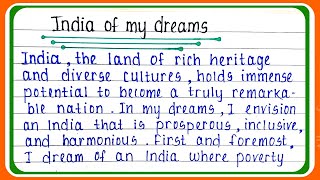 India of my dreams
India, the land of rich heritage
and diverse cultures, holds immense
potential to become a truly remarka-
ble nation. In my dreams, I envision
an India that is prosperous, inclusive,
and harmonious. First and foremost,
I dream of an India where poverty